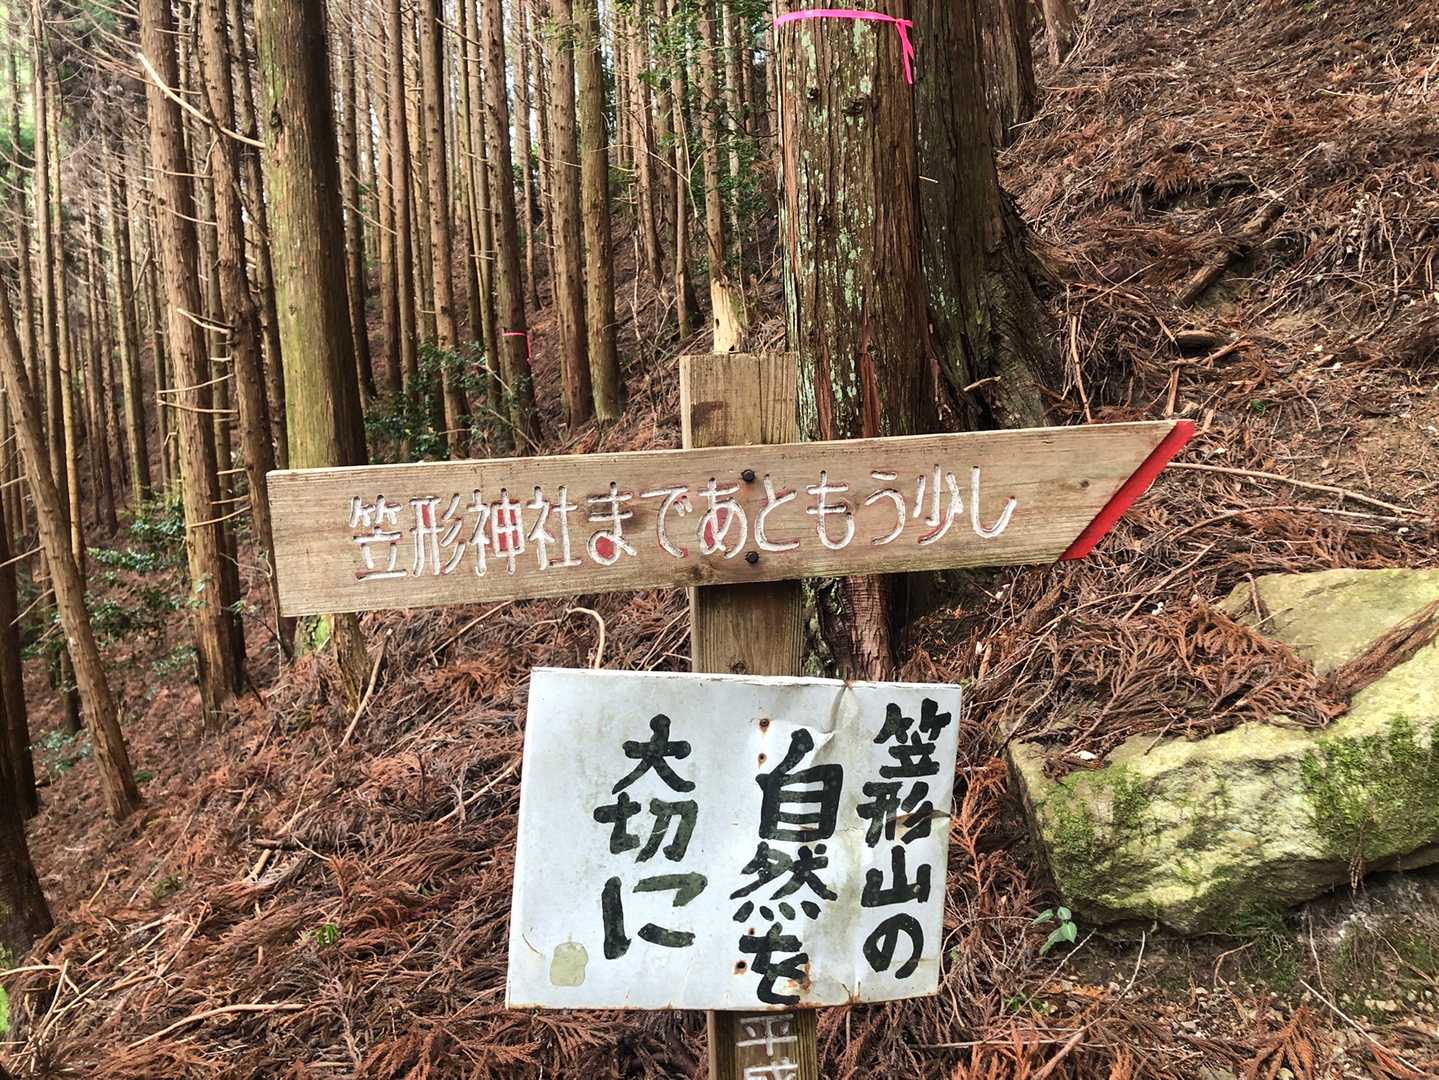 笠形神社まであともう少し
笠形山の
自然を
大切に
平成